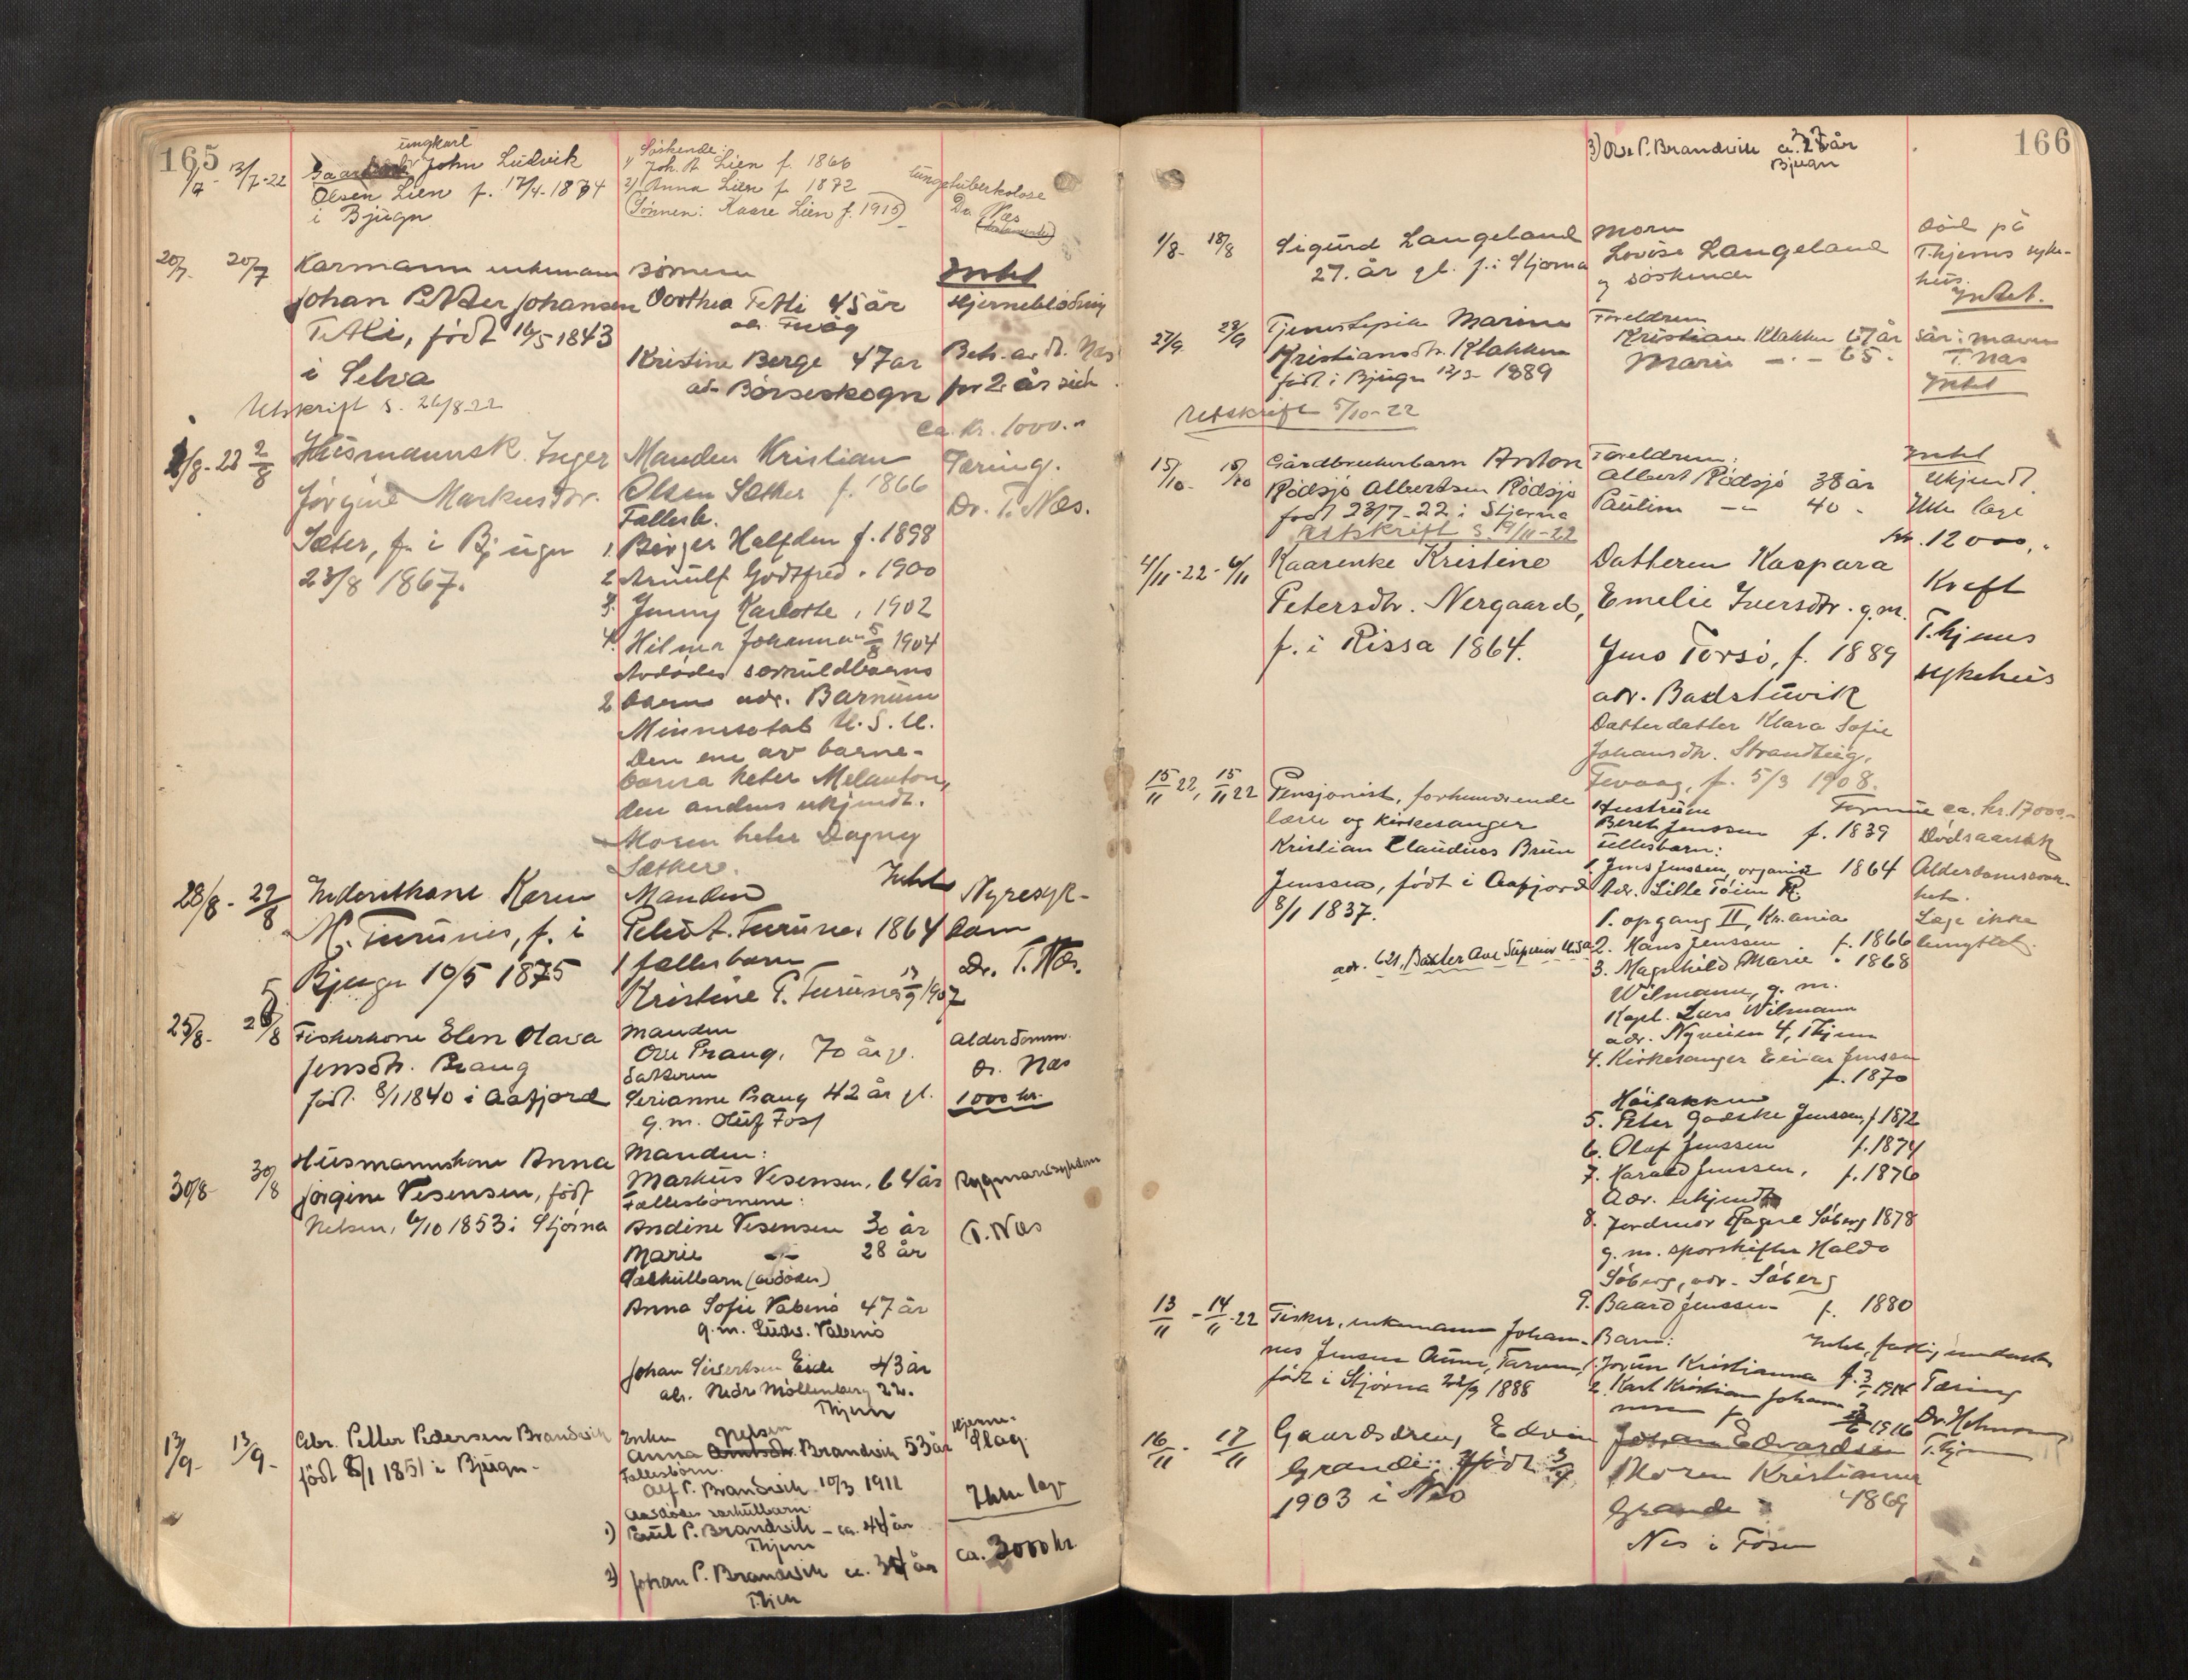 165
1/7 - 13/7-22
ungkarl
John Ludvik
Olsen Lien f. 17/4-1874
i Bjugn
Søskende:
1) Joh. A Lien f. 1866
2) Anna Lien f. 1872
(Sønnen: Kaare Lien f. 1915)
lungetuberkolose
Dr. Næs
20/7. 20/7
Kårmann enkemann
Johan Petter Johansen
født 16/5 1843
i Selva
Utskrift s. 26/8 22
Børnene
Dorthea 45 år
Kristine Berge 47 år
adr. Børseskogn
Intet
Hjerneblødning
Beh. av dr. Næs
for 2 år siden
ca. kr. 1000.-
2/8
Husmannsk. Inger
Jørgine Markusdtr.
Sæter, f. i Bjugn
23/8 1867.
Manden Kristian
Olsen Sæther f. 1866
Fællesb.
1. Birger Halfdan f. 1898
2. Arnulf Godtfred " 1900
3. Jenny Karlotte " 1902
4. Hilmar Johannes 5/8 1904
Avdødes særkuldbarns
2 barn adr. Barnum
Minnesotab U.S.A.
Den ene av barne-
barna heter Melanton,
den andens ukjendt.
Moren heter Dagny
Sæther.
Tæring.
Dr. T. Næs.
28/8 - 29/8
Inderstkone Karen
M. Turunes, f. i
Bjugn 10/5 1875
Manden
Peter A. Turunes 1864
1 fællesbarn
Kristine P. Turunes 1907
Intet
Nyresyk-
dom
Dr. T. Næs.
25/8. 28/8
Fiskerkone Elen Olava
Jensdtr. Prang
født 8/1 1840 i Aafjord
Manden
Ole Prang, 70 år gl.
Datteren
Serianne Prang 42 år gl.
g.m. Oluf Foss
Alderdomm.
Dr. Næs
1000 kr.
30/8 30/8
Husmannskone Anna
Jørgine Vesensen, født
Nelsen, 6/10 1853 i Stjørna
Manden:
Markus Vesensen, 64 år
Fællesbørnene:
Andine Vesensen 30 år
Marie -"- 28 år
Særkulbarn (avdødes)
Anna Sofie Valseno 47 år
g.m. Ludv. Valseno
Johan Sivertsen Eide 43 år
adr. Nedr Møllenberg 22.
Thjem
Rygmarvsykdom
T. Næs
13/9. 13/9.
Petter Pedersen Brandvik
født 8/1 1851 i Bjugn.
Enken Nelsen
Anna Brandvik 53 år
Fællesbørn:
Alf P. Brandvik 10/3 1911
Avdødes særkulbarn
1) Paul P. Brandvik - ca. 44 år
Thjem
2) Johan P. Brandvik ca. 34 år
Thjem
Hjerne-
slag.
Ikke læge
ca. 3000 kr.
166
3) Ole P. Brandvik ca. 27 år
Bjugn
1/8. 18/8
Sigurd Langeland
27. år gl. f. i Stjørna
Moren
Lovise Langeland
og søskende
Død på
T.hjems syke-
hus.
Intet.
27/9. 29/9
Tjenestepike Marine
Kristiansdtr. Klakken
født i Bjugn 12/3-1889
Utskrift 5/10-22
Foreldrene
Kristian Klakken 67 år
Marie -"- 65.
Sår i maven
T. Næs
Intet
15/10. 15/10
Gårdbrukerbarn Anton
Rødsjø Albertsen Rødsjø
født 23/7-22 i Stjørna
Utskrift s 19/11-22
Foreldrene:
Albert Rødsjø 38 år
Pauline -"- 40.
Intet
Ukjendt
Ikke læge
kr. 12000,-
4/11-22 - 6/11
Kaarenke Kristine
Petersdtr. Nergaard,
f. i Rissa 1864.
Datteren Kaspara
Emelie Iversdtr. g.m.
Jens Forsø, f. 1889
adr. Badstuvik
Datterdatter Klara Sofie
Johansdtr. Strandheg,
Tevaag, f. 5/3 1908.
Kræft
T.hjems
sykehus
15/11 22, 15/11 22
Pensjonist, forhenværende
lærer og kirkesanger
Kristian Claudius Brun
Jenssen, født i Aafjord
8/1 1837.
Hustruen
Beret Jenssen f. 1839
Fællesbarn:
1. Jens Jenssen, organist 1864
Adr. Lille Tøien R.
1. opgang II, Kr.ania
adr. 621, Baxter Ave Superior U.S.A.
2. Hans Jenssen f. 1866
3. Magnhild Marie " 1868
Wilmann, g.m.
Kapt. Lars Wilmann
adr. Nyveien 4, Thjem
4. Kirkesanger Einar Jenssen
f. 1870
Høibakken
5. Peter Godske Jenssen, f. 1872
6. Olaf Jenssen f. 1874
7. Harald Jenssen, f. 1876
Adr. ukjendt
8. Jordmor Ragna Søberg 1878
g.m. sporskifter Haldo
Søberg, adr. Søberg
9. Baard Jenssen f. 1880
Formue ca. kr. 17000,-
Dødsaarsak
Alderdomssvak-
het.
Læge ikke
benyttet.
13/11 - 14/11-22
Fisker, enkemann Johan-
nes Jensen
født i Stjørna 22/9 1888
Barn:
1. Jorun Kristianna f. 1914
2. Karl Kristian Johan-
nesen f. 1916
Intet, fattigunderst.
Tæring
Dr. Holmann
T.hjem
16/11. 17/11
Gaardsdreng Edvin
Grande, født
1903 i Nes
Johan Edvardsen
Moren Kristianna
Grande 1869
Nes i Fosen